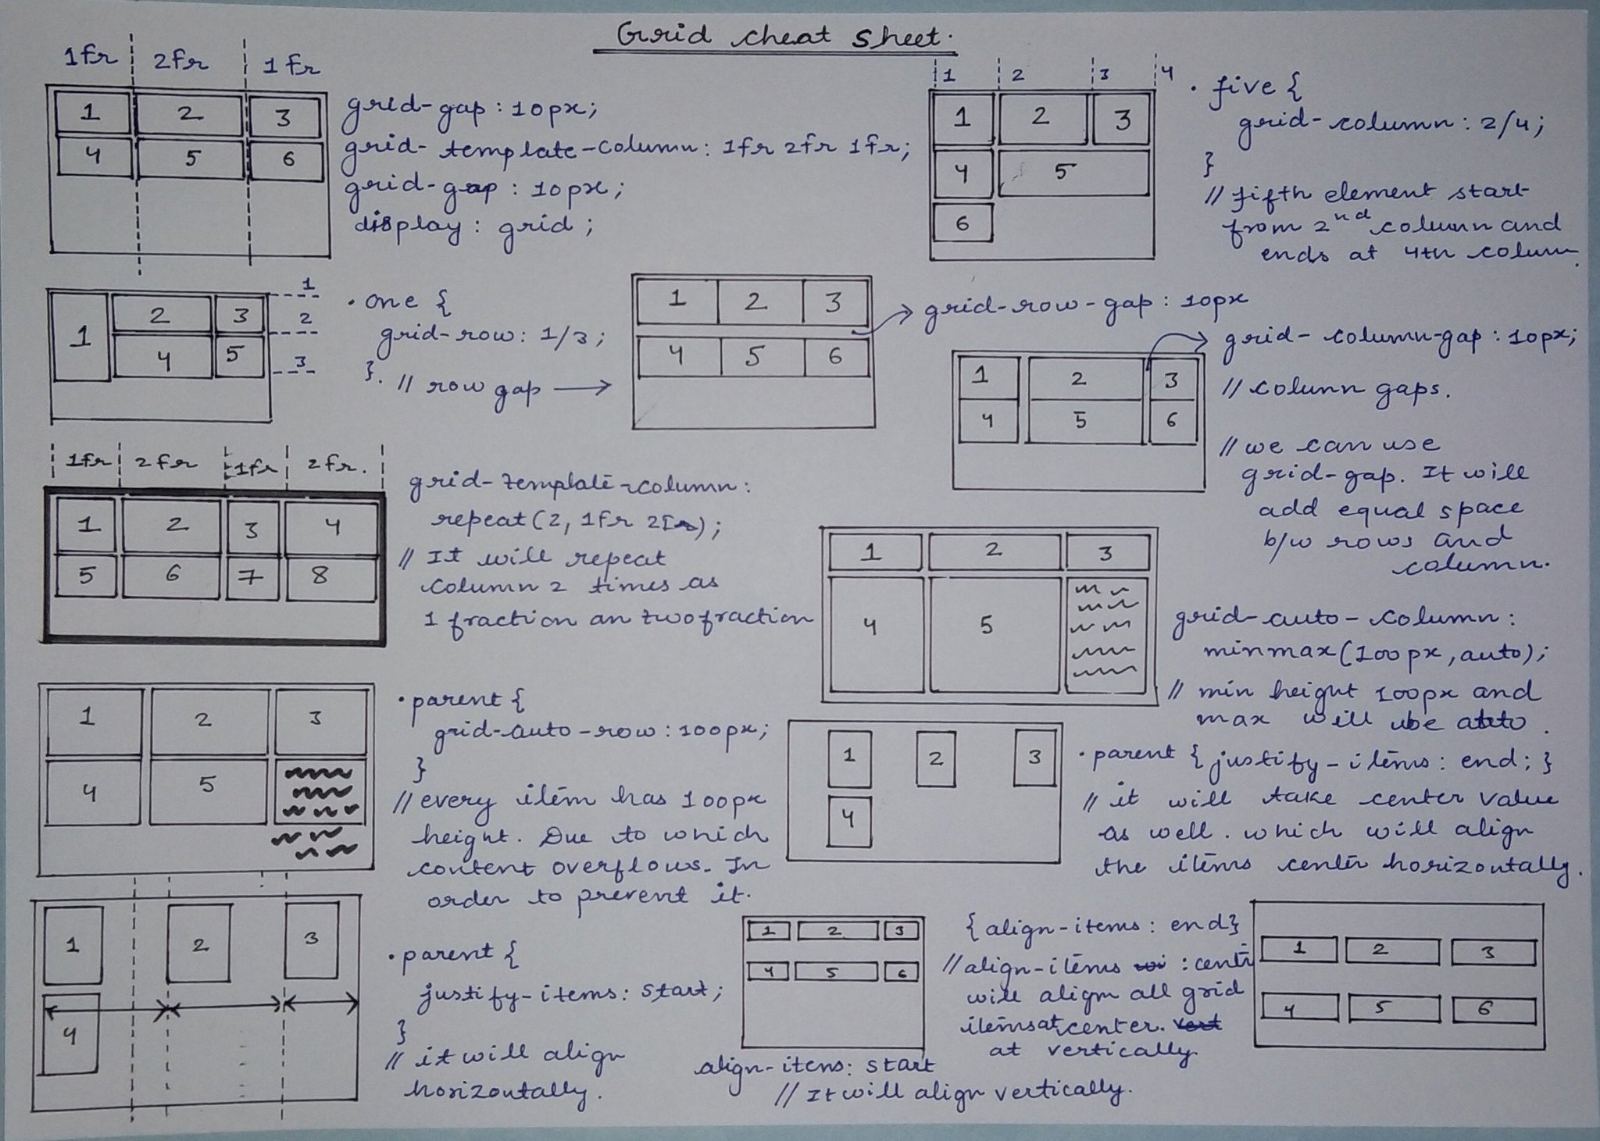 Grid cheat sheet.
1fr 2fr 1fr
1 2 3
4 5 6
grid-gap: 10px;
grid-template-column: 1fr 2fr 1fr;
grid-gap: 10px;
display: grid;
1 2 3 4
1 2 3
4 5
6
. five {
grid-column: 2/4;
}
// fifth element start
from 2nd column and
ends at 4th column.
1 2 3
4 5
1
2
3
. one {
grid-row: 1/3;
}.
// row gap
1 2 3
4 5 6
grid-row-gap: 10px
1 2 3
4 5 6
grid-column-gap: 10px;
// column gaps.
// we can use
grid-gap. It will
add equal space
b/w rows and
column.
1fr 2fr 1fr 2fr.
1 2 3 4
5 6 7 8
grid-template-column:
repeat(2, 1fr 2fr);
// It will repeat
column 2 times as
1 fraction an two fraction
1 2 3
4 5
grid-auto-column:
minmax(100px, auto);
// min height 100px and
max will be auto.
1 2 3
4 5
. parent {
grid-auto-row: 100px;
}
// every item has 100px
height. Due to which
content overflows. In
order to prevent it.
1 2 3
4
. parent { justify-items: end; }
// it will take center value
as well. which will align
the items center horizontally.
1 2 3
4
. parent {
justify-items: start;
}
// it will align
horizontally.
1 2 3
4 5 6
align-itens: start
// It will align vertically.
{ align-items: end}
// align-items : centr
will align all grid
items at center.
at vertically.
1 2 3
4 5 6